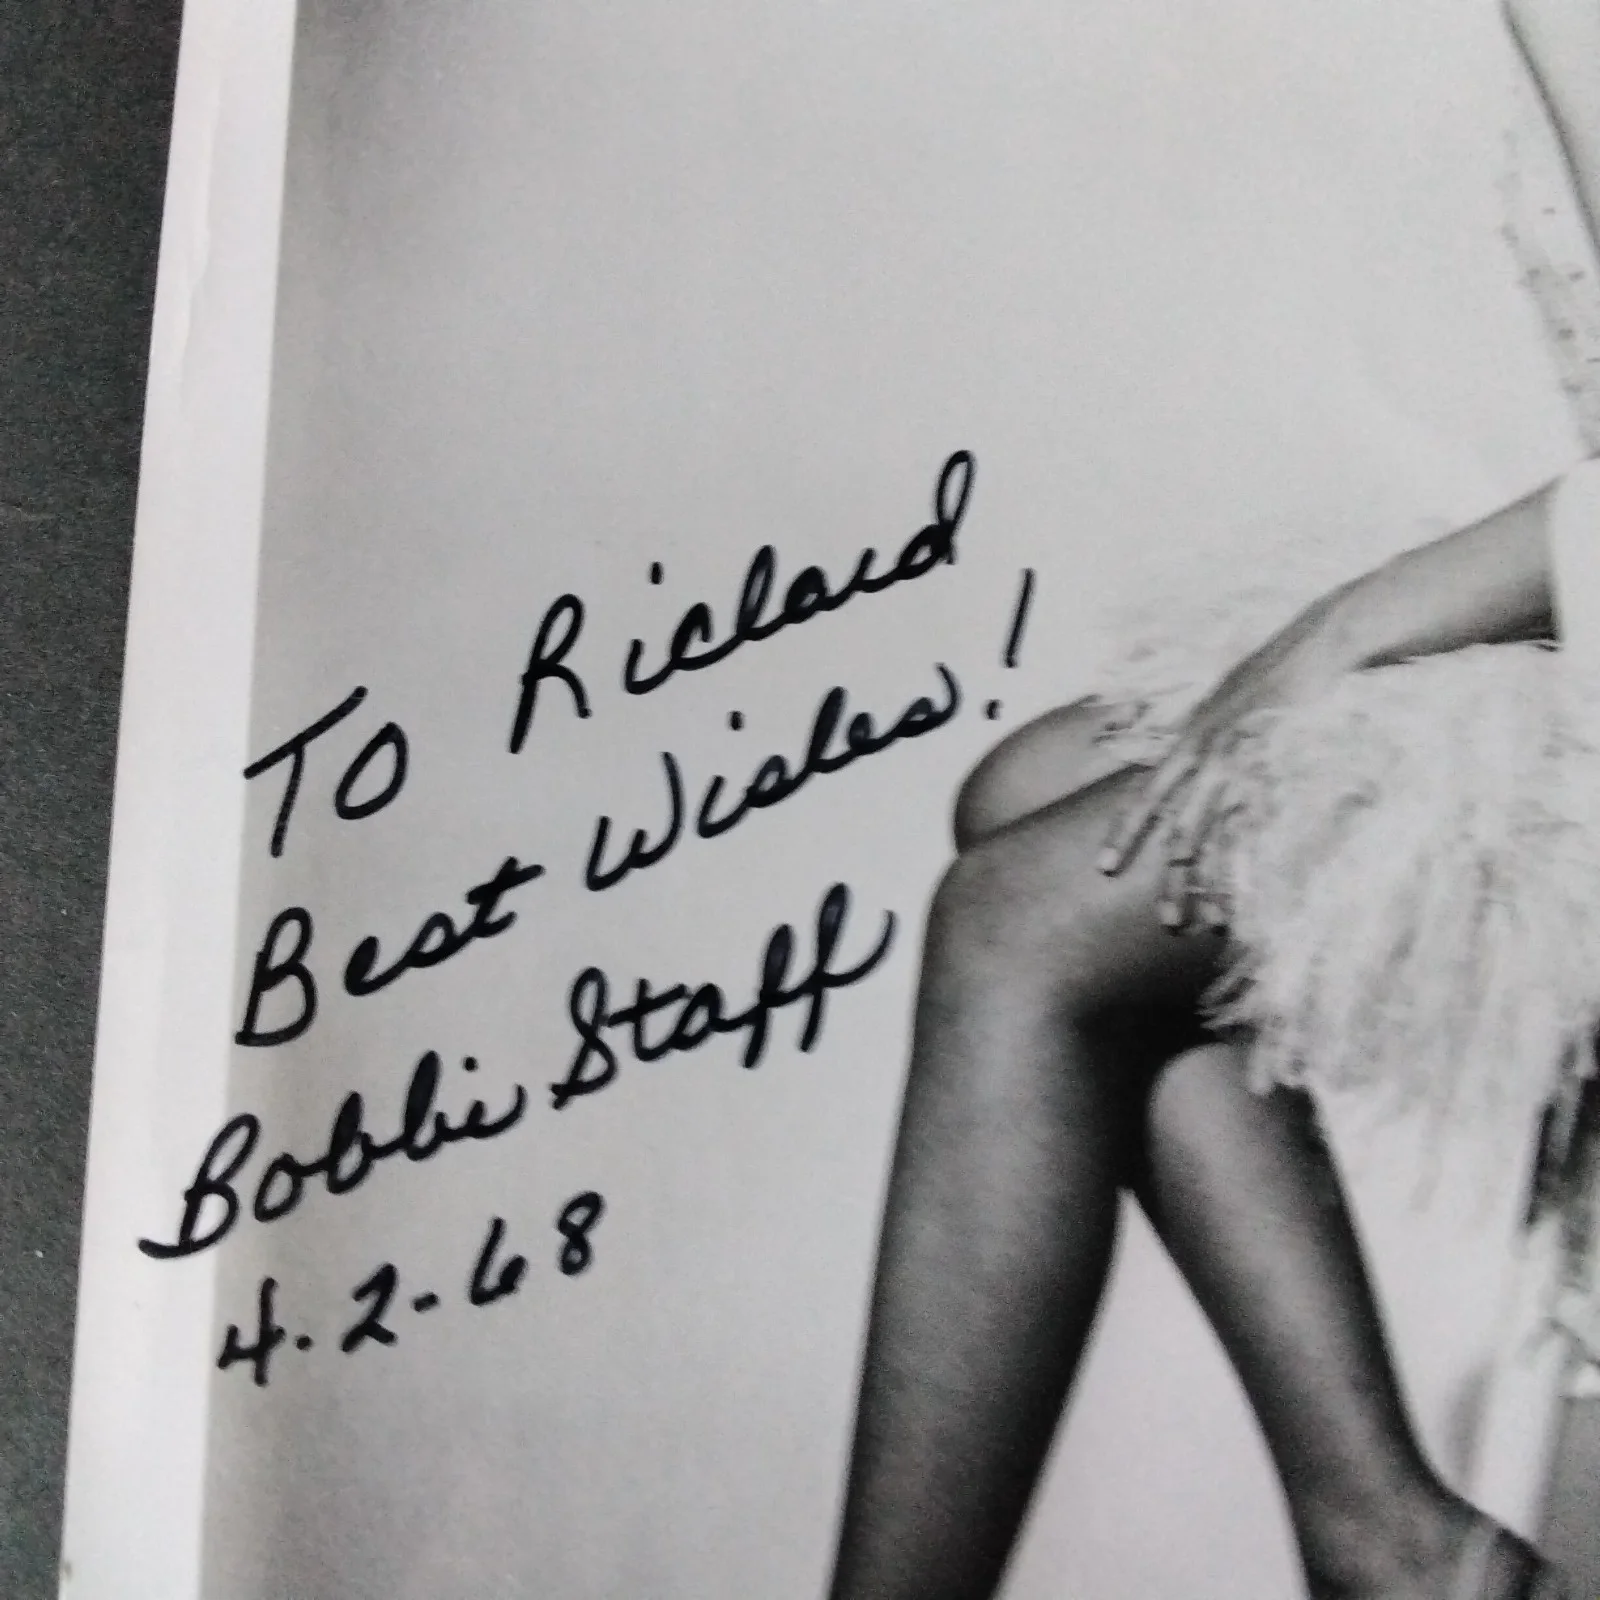 To Richard
Best Wishes!
Bobbie Staff
4-2-68